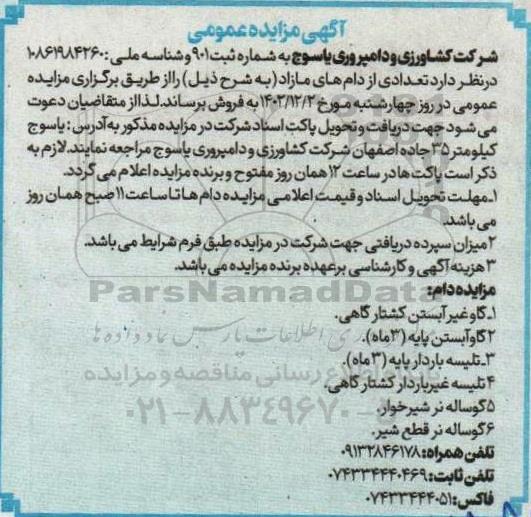 آگهی مزایده عمومی
شرکت کشاورزی و دامپروری یاسوج به شماره ثبت ۹۰۱ و شناسه ملی: ۱۰۸۶۱۹۸۴۲۶۰
در نظر دارد تعدادی از دام های مازاد (به شرح ذیل) را از طریق برگزاری مزایده
عمومی در روز چهارشنبه مورخ ۱۴۰۲/۱۲/۲ به فروش برساند. لذا از متقاضیان دعوت
می شود جهت دریافت و تحویل پاکت اسناد شرکت در مزایده مذکور به آدرس: یاسوج
کیلومتر ۳۵ جاده اصفهان شرکت کشاورزی و دامپروری یاسوج مراجعه نمایند. لازم به
ذکر است پاکت ها در ساعت ۱۲ همان روز مفتوح و برنده مزایده اعلام می گردد.
۱ـ مهلت تحویل اسناد و قیمت اعلامی مزایده دام ها تا ساعت ۱۱ صبح همان روز
می باشد.
۲ میزان سپرده دریافتی جهت شرکت در مزایده طبق فرم شرایط می باشد.
۳ هزینه آگهی و کارشناسی بر عهده برنده مزایده می باشد.
ParsNamadData
مزایده دام:
۱ـ گاو غیر آبستن کشتارگاهی.
۲ گاو آبستن پایه (۳ ماه).
۳ـ تلیسه باردار پایه (۳ ماه).
پایگاه اطلاع رسانی مناقصه و مزایده
۴ تلیسه غیرباردار کشتارگاهی.
۵ گوساله نر شیرخوار.
۰۲۱-۸۸۳۴۹۶۷۰
۶ گوساله نر قطع شیر.
تلفن همراه: ۰۹۱۳۲۸۴۶۱۷۸
تلفن ثابت: ۰۷۴۳۳۴۴۴۰۴۶۹
فاکس: ۰۷۴۳۳۴۴۴۰۵۱